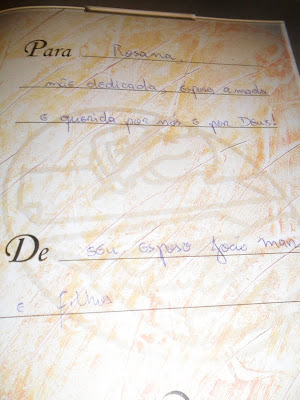 Para Rosana,
mãe dedicada, esposa amada
e querida por nós e por Deus!
De seu esposo João Man
e filhos